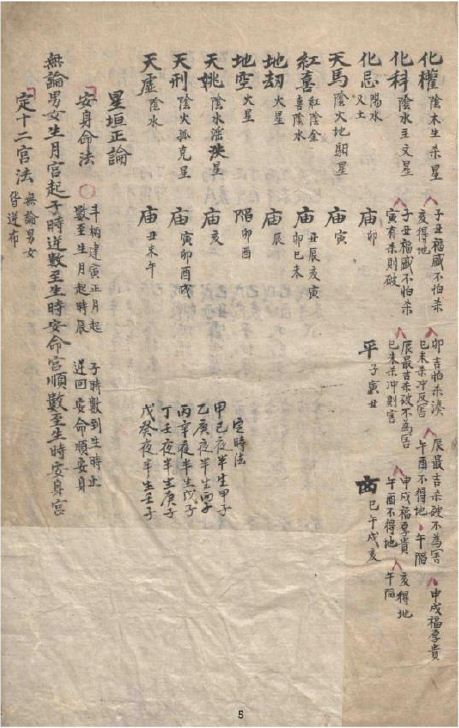 化權 陰木生杀星 子丑福盛不怕杀 卯吉怕杀湊 辰最吉杀破不為害 申戌福厚貴
亥得地 巳未杀冲反害 午酉不得地 午陷
化科 陰水主文星 子丑福盛不怕杀 辰最吉杀破不為害 申戌福厚貴 亥得地
寅有杀則破 巳未杀冲則害 午酉不得地 午陷
化忌 陽水又土 庙 卯 平 子寅丑 陷 巳午戌亥
天馬 陰火地馹星 庙 寅
紅喜 紅陰金 喜陰水 庙 丑辰亥寅 卯巳未
地劫 火星 庙 辰
地空 火星 陷 卯酉
天姚 陰水淫泆星 庙 亥
天刑 陰火孤克星 庙 寅卯酉戌
天虛 陰水 庙 丑未午
定時法
甲己夜半生甲子
乙庚夜半生丙子
丙辛夜半生戊子
丁壬夜半生庚子
戊癸夜半生壬子
星垣正論
安身命法 斗柄建寅正月起 子時數到生時止
數至生月起時辰 逆回安命順安身
無論男女生月宮起子時逆數至生時安命宮順數至生時安身宮
定十二宮法 無論男女
皆逆布
5